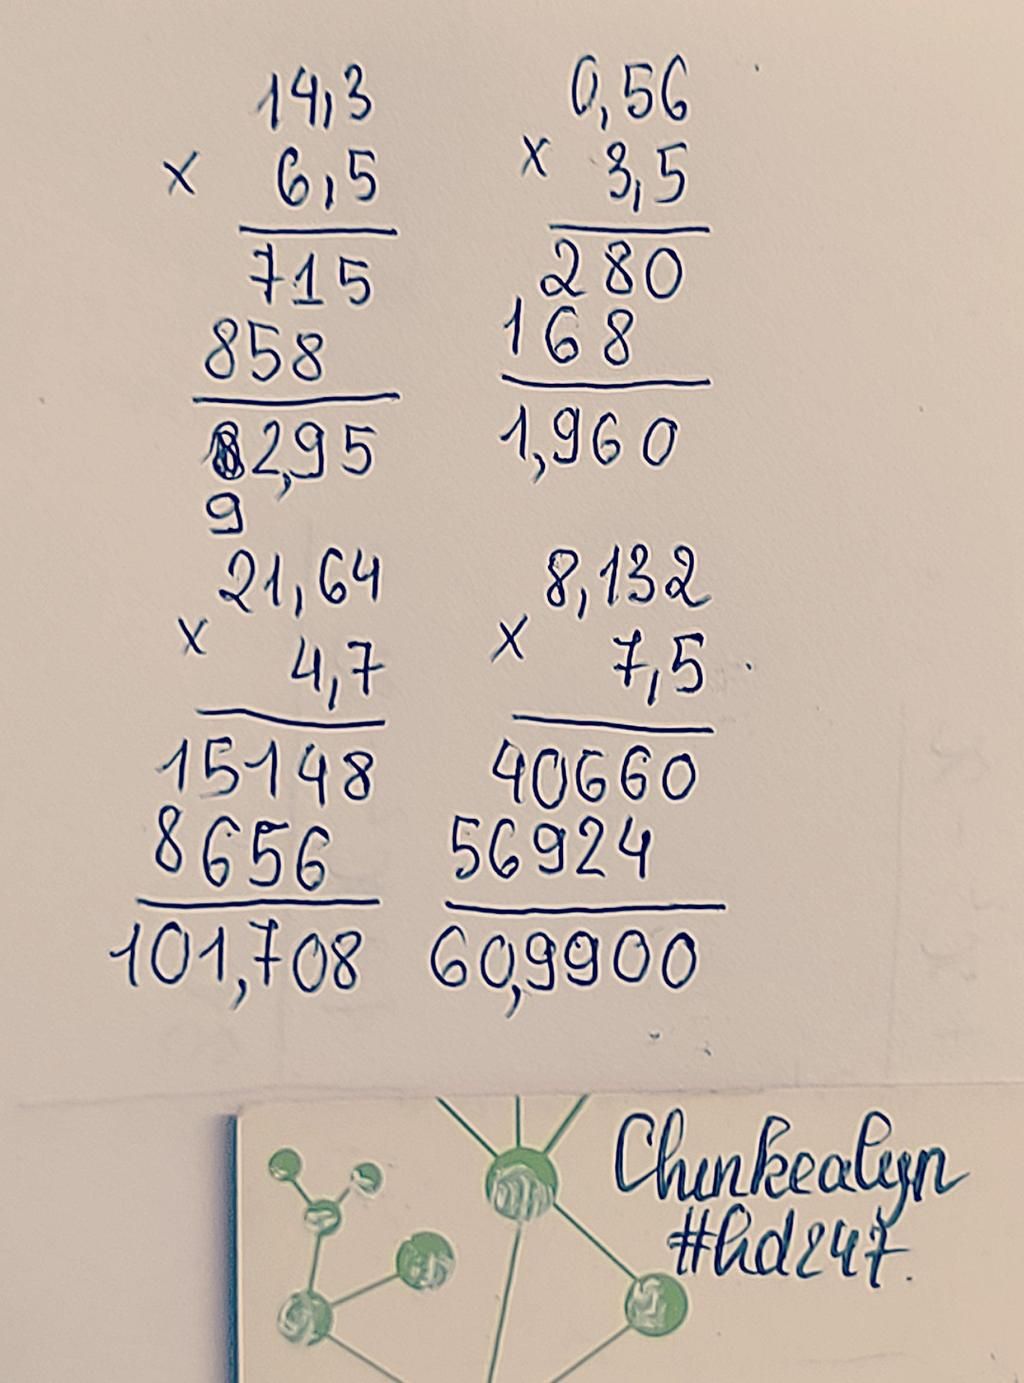 14,3
x 6,5
715
858
82,95
9
0,56
x 3,5
280
168
1,960
21,64
x 4,7
15148
8656
101,708
8,132
x 7,5
40660
56924
60,9900
Chunkealyn
#hd247.